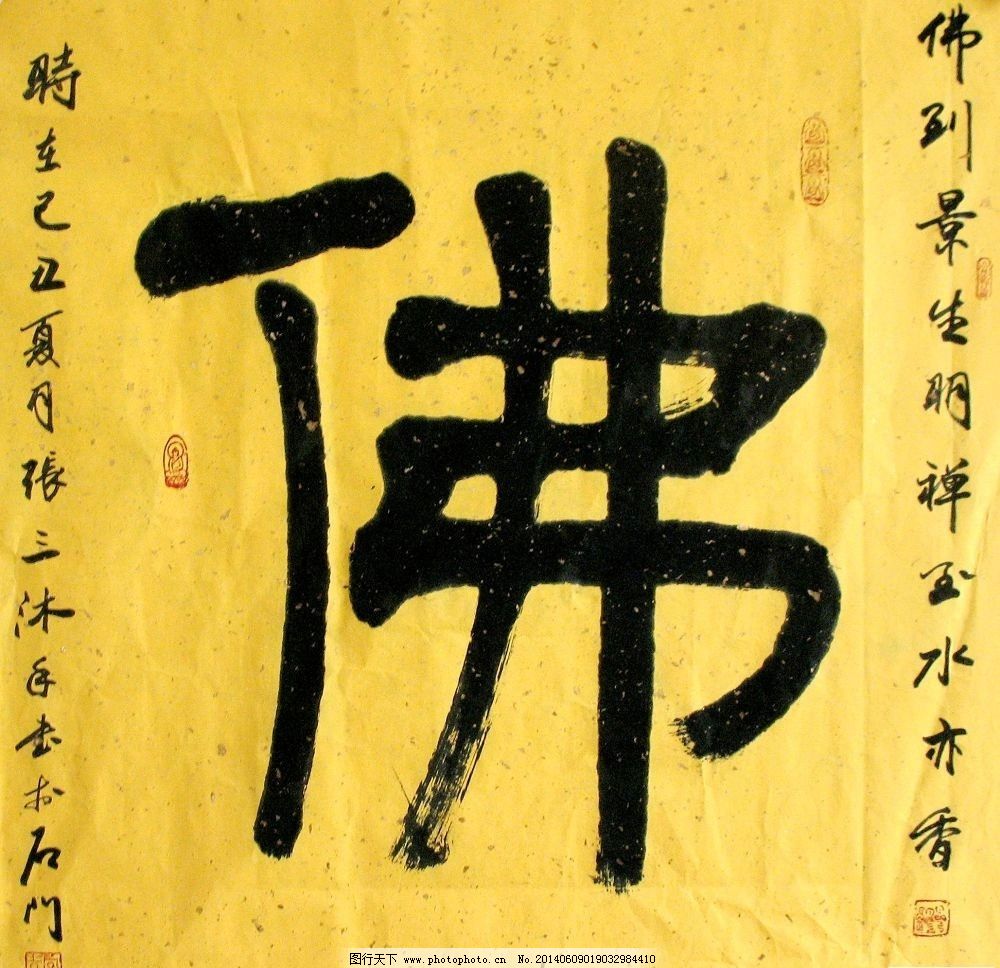 佛到景生明禅至水亦香
佛
時在己丑夏月張三沐手书於石門
图行天下 www.photophoto.cn No.20140609019032984410